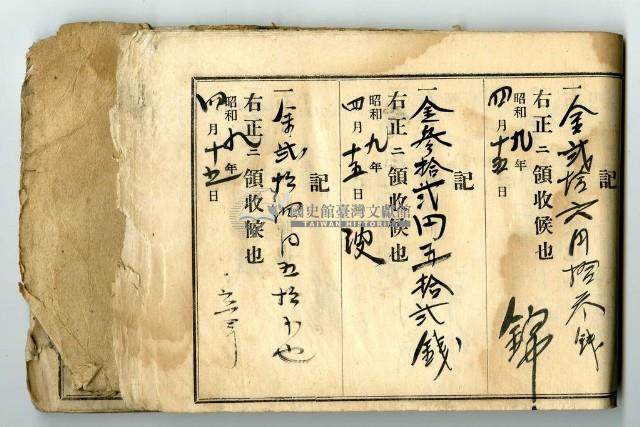 記
一金貳拾六円拾叁銭
右正ニ領收候也
昭和九年
四月十五日
錦
記
一金參拾貳円五拾貳錢
右正ニ領收候也
昭和九年
四月十五日
記
一金貳拾四円五拾
右正ニ領收候也
昭和九年
四月十五日
國史館臺灣文獻館
TAIWAN HISTORICA